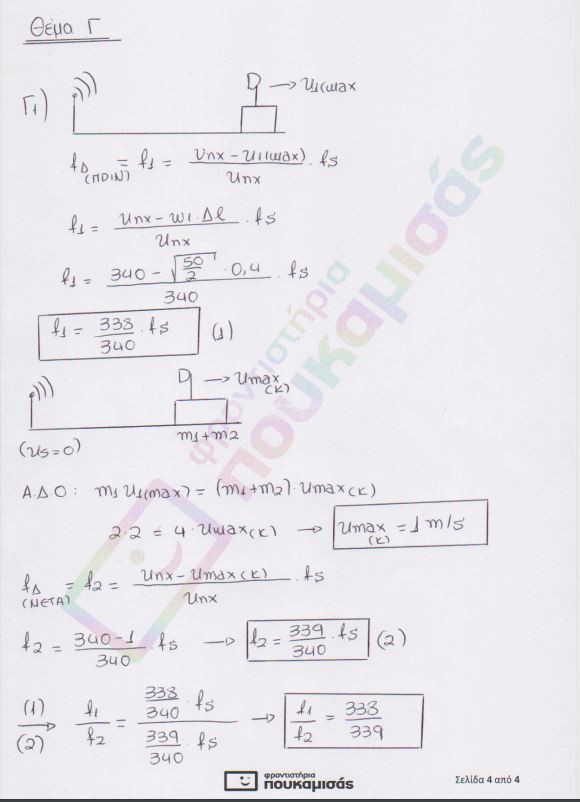 Θέμα Γ
Γ1)
→ υ1(max
fΔ (ΠΡΙΝ) = f1 = υηχ - υ1(max) / υηχ · fs
f1 = υηχ - ω1·Δl / υηχ · fs
f1 = 340 - √50/2 · 0,4 / 340 · fs
f1 = 338/340 · fs (1)
→ υmax (κ)
(υs=0) m1+m2
Α.Δ.Ο: m1 υ1(max) = (m1+m2)·υmax(κ)
2·2 = 4·υmax(κ) → υmax (κ) = 1 m/s
fΔ (ΜΕΤΑ) = f2 = υηχ - υmax(κ) / υηχ · fs
f2 = 340-1 / 340 · fs → f2 = 339/340 · fs (2)
(1)/(2) → f1/f2 = 338/340 · fs / 339/340 · fs → f1/f2 = 338/339
φροντιστήρια πουκαμισάς
φροντιστήρια
πουκαμισάς
Σελίδα 4 από 4